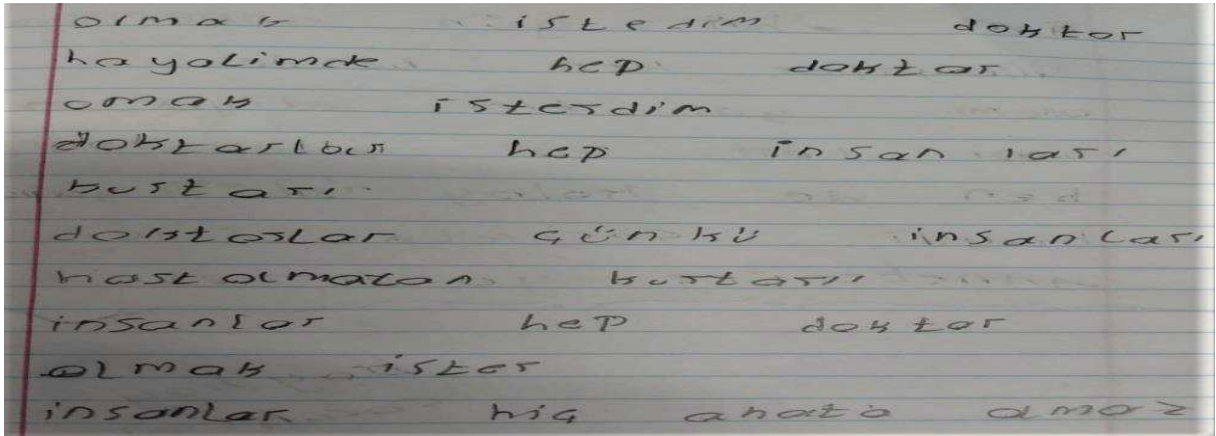 olmak istedim doktor
hayalimde hep doktor
omak isterdim
doktorlar hep insanları
kurtarı
doktorlar çünkü insanları
hastalmatan kurtarır
insanlar hep doktor
olmak ister
insanlar hiç